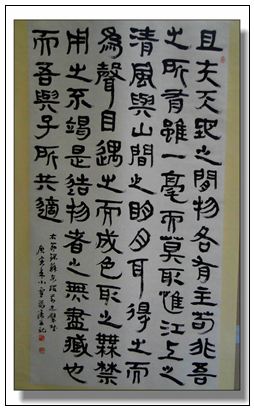 且夫天地之間物各有主苟非吾
之所有雖一毫而莫取惟江上之
清風與山間之明月耳得之而
為聲目遇之而成色取之無禁
用之不竭是造物者之無盡藏也
而吾與子所共適
庚寅年小雪